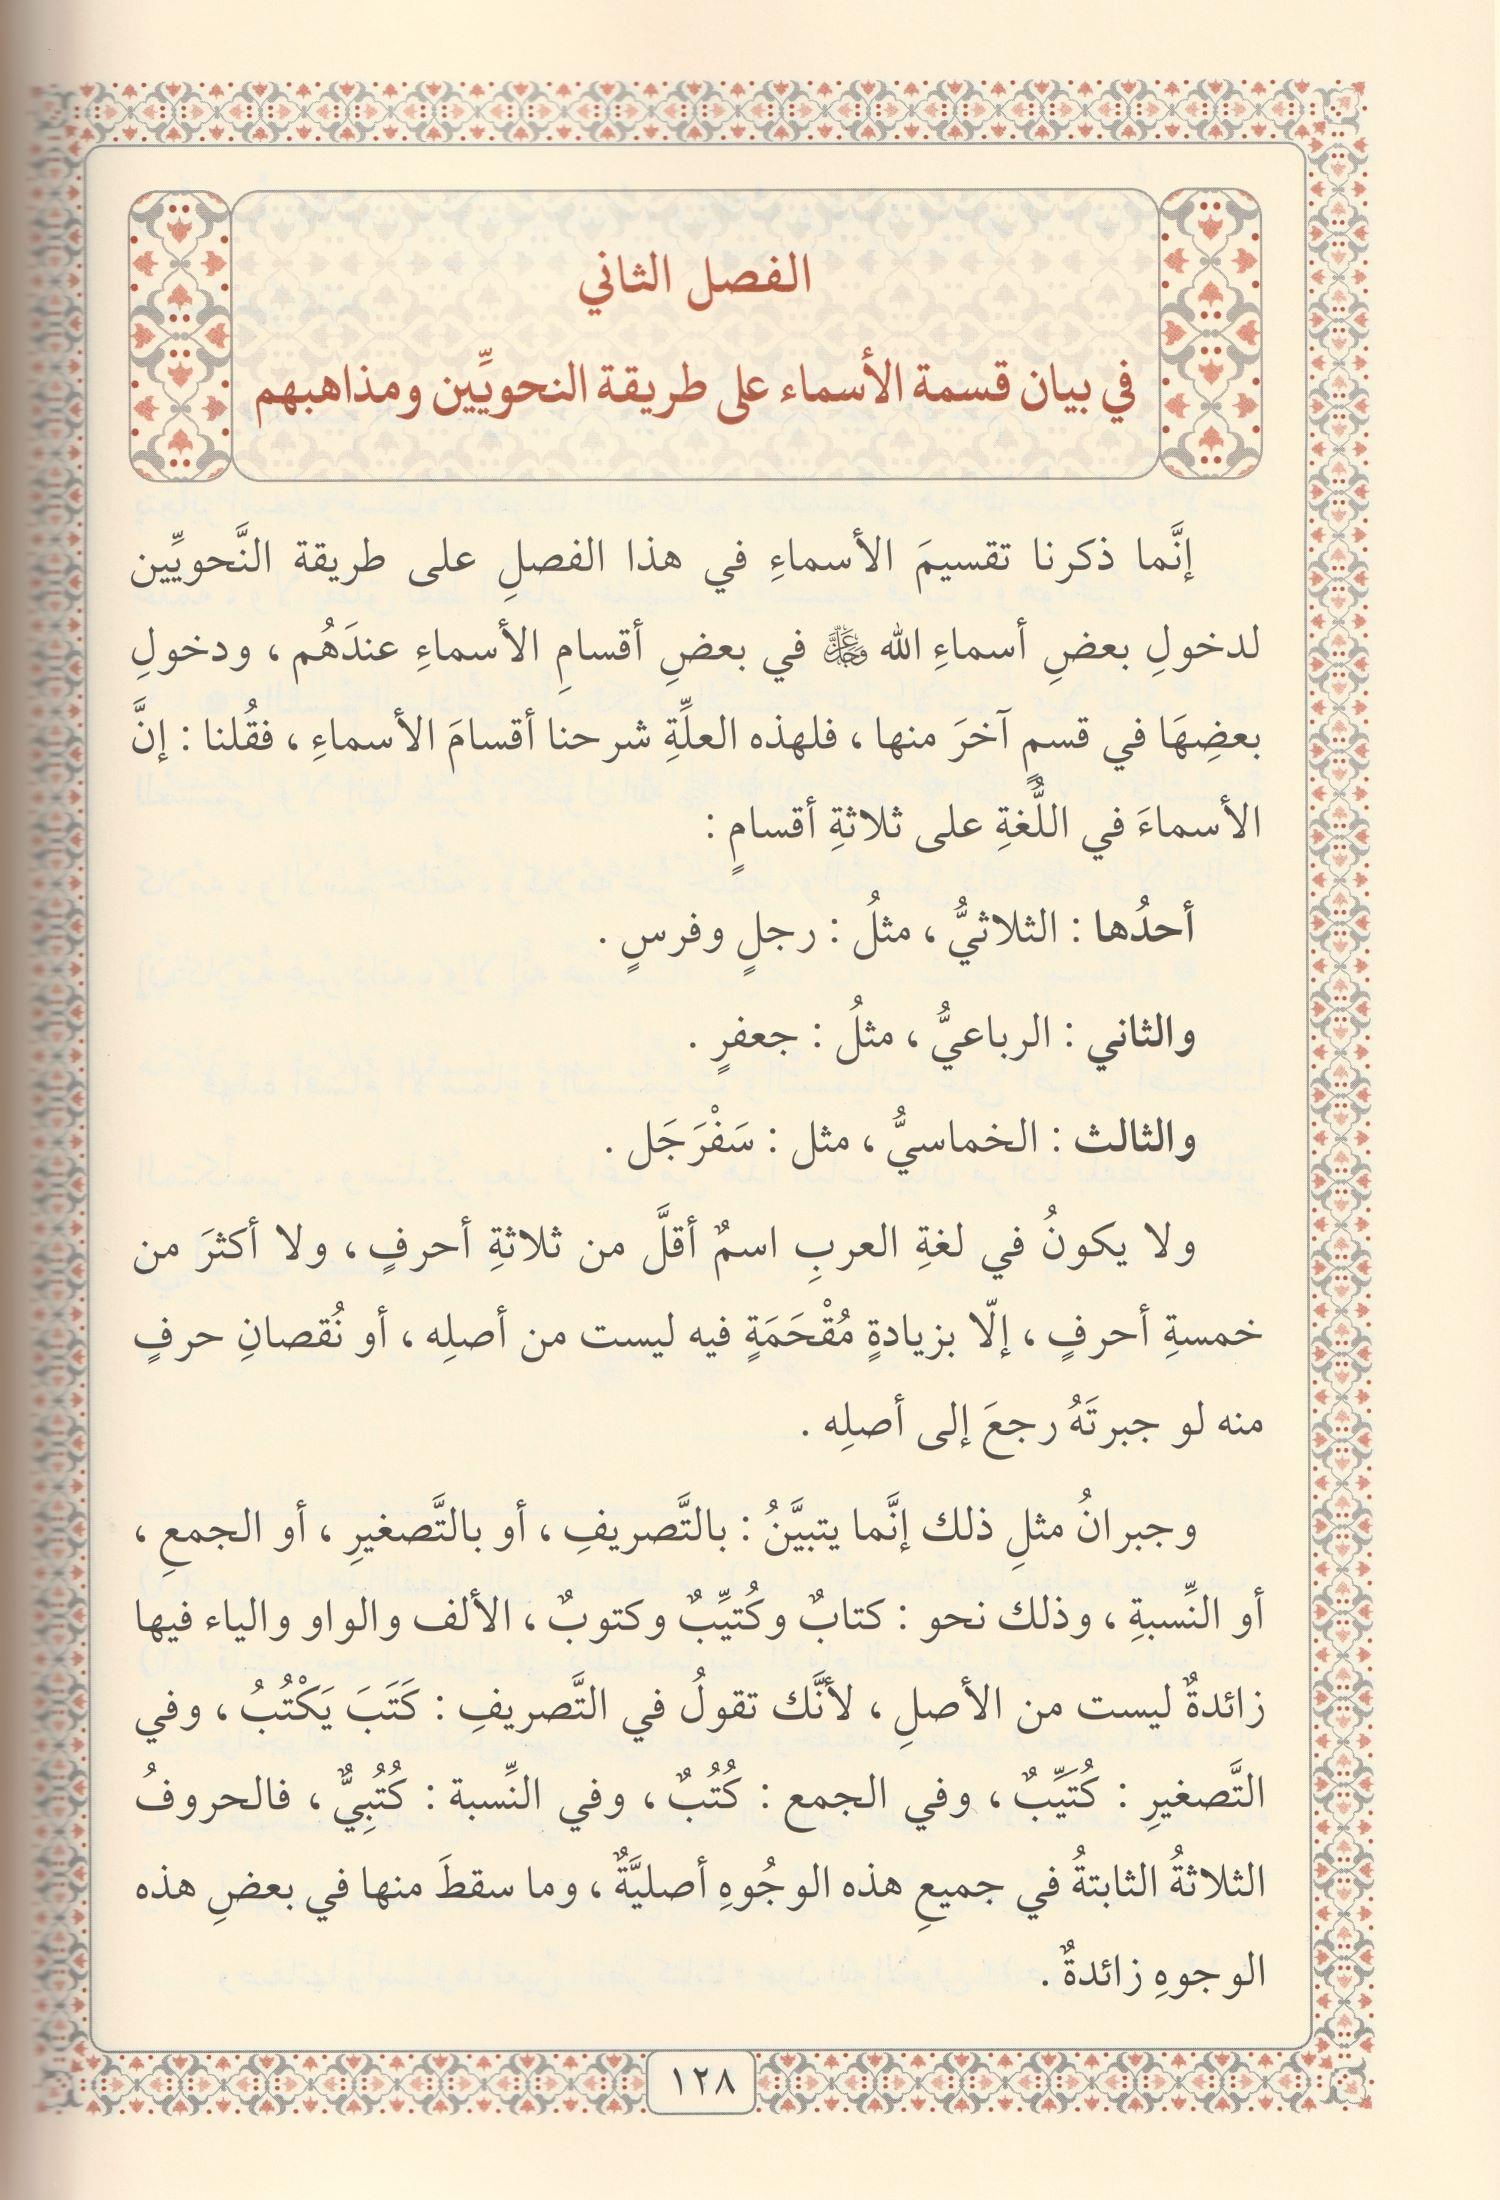 الفصل الثاني
في بيان قسمة الأسماء على طريقة النحويِّين ومذاهبهم
إنَّما ذكرنا تقسيمَ الأسماءِ في هذا الفصلِ على طريقة النَّحويِّين
لدخولِ بعضِ أسماءِ الله عَزَّوَجَلَّ في بعضِ أقسامِ الأسماءِ عندَهُم ، ودخولِ
بعضِهَا في قسمٍ آخرَ منها ، فلهذه العلِّةِ شرحنا أقسامَ الأسماءِ ، فقُلنا : إنَّ
الأسماءَ في اللُّغةِ على ثلاثةِ أقسامٍ :
أحدُها : الثلاثيُّ ، مثلُ : رجلٍ وفرسٍ .
والثاني : الرباعيُّ ، مثلُ : جعفرٍ .
والثالث : الخماسيُّ ، مثل : سَفْرَجَل .
ولا يكونُ في لغةِ العربِ اسمٌ أقلَّ من ثلاثةِ أحرفٍ ، ولا أكثرَ من
خمسةِ أحرفٍ ، إلّا بزيادةٍ مُقْحَمَةٍ فيه ليست من أصلِه ، أو نُقصانِ حرفٍ
منه لو جبرتَهُ رجعَ إلى أصلِه .
وجبرانُ مثلِ ذلك إنَّما يتبيَّنُ : بالتَّصريفِ ، أو بالتَّصغيرِ ، أو الجمعِ ،
أو النِّسبةِ ، وذلك نحو : كتابٌ وكُتيِّبٌ وكتوبٌ ، الألف والواو والياء فيها
زائدةٌ ليست من الأصلِ ، لأنَّك تقولُ في التَّصريفِ : كَتَبَ يَكْتُبُ ، وفي
التَّصغيرِ : كُتَيِّبٌ ، وفي الجمع : كُتُبٌ ، وفي النِّسبة : كُتُبِيٌّ ، فالحروفُ
الثلاثةُ الثابتةُ في جميعِ هذه الوجُوهِ أصليَّةٌ ، وما سقطَ منها في بعضِ هذه
الوجوهِ زائدةٌ .
١٢٨